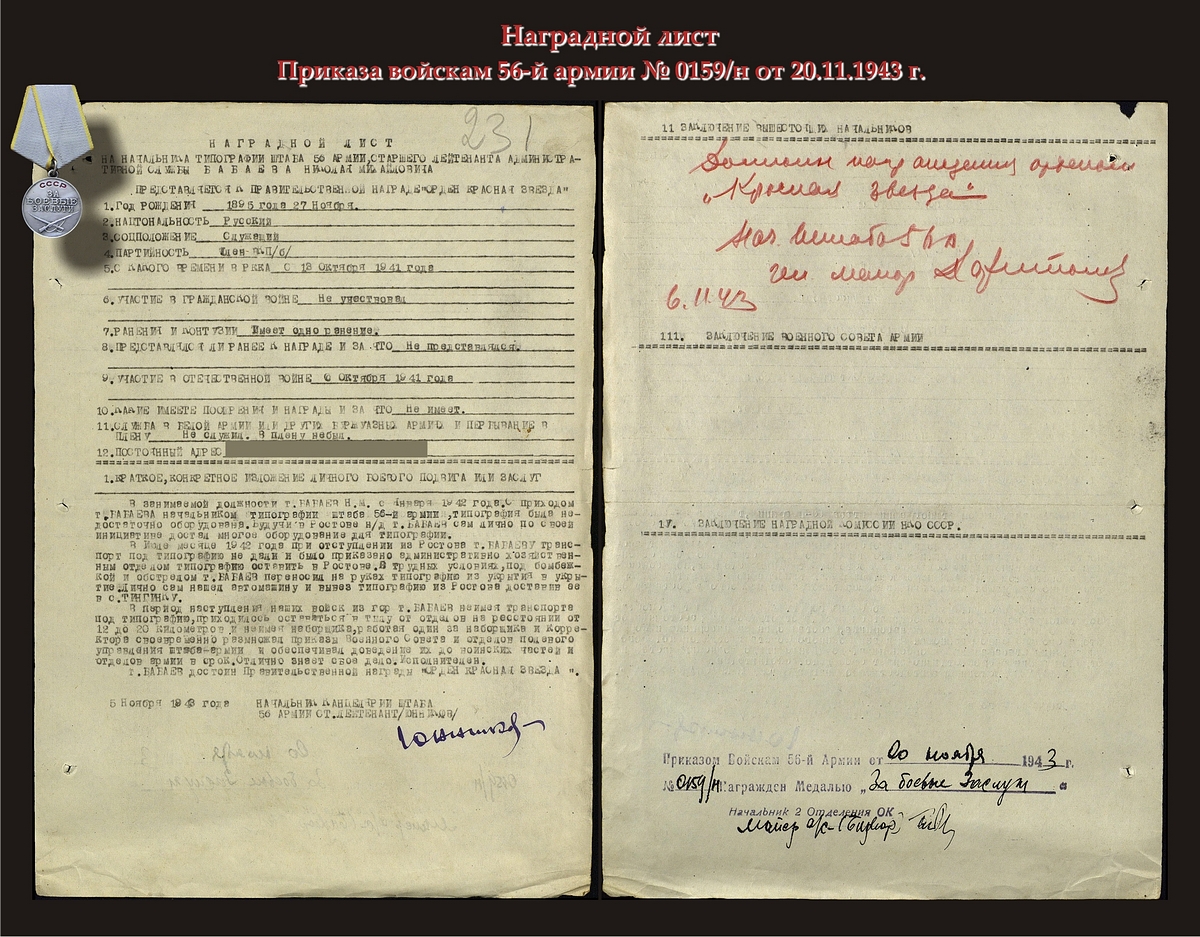 Наградной лист
Приказа войскам 56-й армии № 0159/н от 20.11.1943 г.
СССР
ЗА
БОЕВЫЕ
ЗАСЛУГИ
231
НАГРАДНОЙ ЛИСТ
НА НАЧАЛЬНИКА ТИПОГРАФИИ ШТАБА 56 АРМИИ, СТАРШЕГО ЛЕЙТЕНАНТА АДМИНИСТРА-
ТИВНОЙ СЛУЖБЫ БАБАЕВА НИКОЛАЯ МИХАЙЛОВИЧА
ПРЕДСТАВЛЯЕТСЯ К ПРАВИТЕЛЬСТВЕННОЙ НАГРАДЕ "ОРДЕН КРАСНАЯ ЗВЕЗДА"
1. ГОД РОЖДЕНИЯ 1895 года 27 Ноября.
2. НАЦИОНАЛЬНОСТЬ Русский
3. СОЦПОЛОЖЕНИЕ Служащий
4. ПАРТИЙНОСТЬ Член ВКП/б/
5. С КАКОГО ВРЕМЕНИ В РККА С 13 Октября 1941 года
6. УЧАСТИЕ В ГРАЖДАНСКОЙ ВОЙНЕ Не участвовал
7. РАНЕНИЯ И КОНТУЗИИ Имеет одно ранение.
8. ПРЕДСТАВЛЯЛСЯ ЛИ РАНЕЕ К НАГРАДЕ И ЗА ЧТО Не представлялся.
9. УЧАСТИЕ В ОТЕЧЕСТВЕННОЙ ВОЙНЕ С Октября 1941 года
10. КАКИЕ ИМЕЕТЕ ПООЩРЕНИЯ И НАГРАДЫ И ЗА ЧТО Не имеет.
11. СЛУЖБА В БЕЛОЙ АРМИИ ИЛИ ДРУГИХ БУРЖУАЗНЫХ АРМИЯХ И ПЕРЕБЫВАНИЕ В
ПЛЕНУ Не служил. В плену небыл.
12. ПОСТОЯННЫЙ АДРЕС
1. КРАТКОЕ, КОНКРЕТНОЕ ИЗЛОЖЕНИЕ ЛИЧНОГО БОЕВОГО ПОДВИГА ИЛИ ЗАСЛУГ
В занимаемой должности т. БАБАЕВ Н.М. с Января 1942 года. С приходом
т. БАБАЕВА начальником типографии штаба 56-й армии, типография была не-
достаточно оборудована. Будучи в Ростове н/Д т. БАБАЕВ сам лично по своей
инициативе достал многое оборудование для типографии.
В Июле месяце 1942 года при отступлении из Ростова т. БАБАЕВУ транс-
порт под типографию не дали и было приказано административно хозяйствен-
ным отделом типографию оставить в Ростове. В трудных условиях, под бомбеж-
кой и обстрелом т. БАБАЕВ переносил на руках типографию из укрытия в укры-
тие. Лично сам нашел автомашину и вывез типографию из Ростова доставив ее
в с. ТИНГИНКУ.
В период наступления наших войск из гор т. БАБАЕВ неимея транспорта
под типографию, приходилось оставаться в тылу от отделов на расстоянии от
12 до 20 километров и неимея наборщика, работая один за наборщика и корре-
ктора своевременно размножал приказы Военного Совета и отделов полевого
управления штаба-армии и обеспечивал доведение их до воинских частей и
отделов армии в срок. Отлично знает свое дело. Исполнителен.
т. БАБАЕВ достоин Правительственной награды "ОРДЕН КРАСНАЯ ЗВЕЗДА".
5 Ноября 1943 года НАЧАЛЬНИК КАНЦЕЛЯРИИ ШТАБА
56 АРМИИ СТ. ЛЕЙТЕНАНТ /ЮННИКОВ/
11 ЗАКЛЮЧЕНИЕ ВЫШЕСТОЯЩИХ НАЧАЛЬНИКОВ
Достоин награждения орденом
„Красная Звезда"
Нач. Штаба 56 А
ген майор
6.11.43
111. ЗАКЛЮЧЕНИЕ ВОЕННОГО СОВЕТА АРМИИ
1У. ЗАКЛЮЧЕНИЕ НАГРАДНОЙ КОМИССИИ НКО СССР.
Приказом Войскам 56-й Армии от 20 ноября 1943 г.
№ 0159/н Награжден Медалью „За боевые Заслуги"
Начальник 2 Отделения ОК
Майор а/с